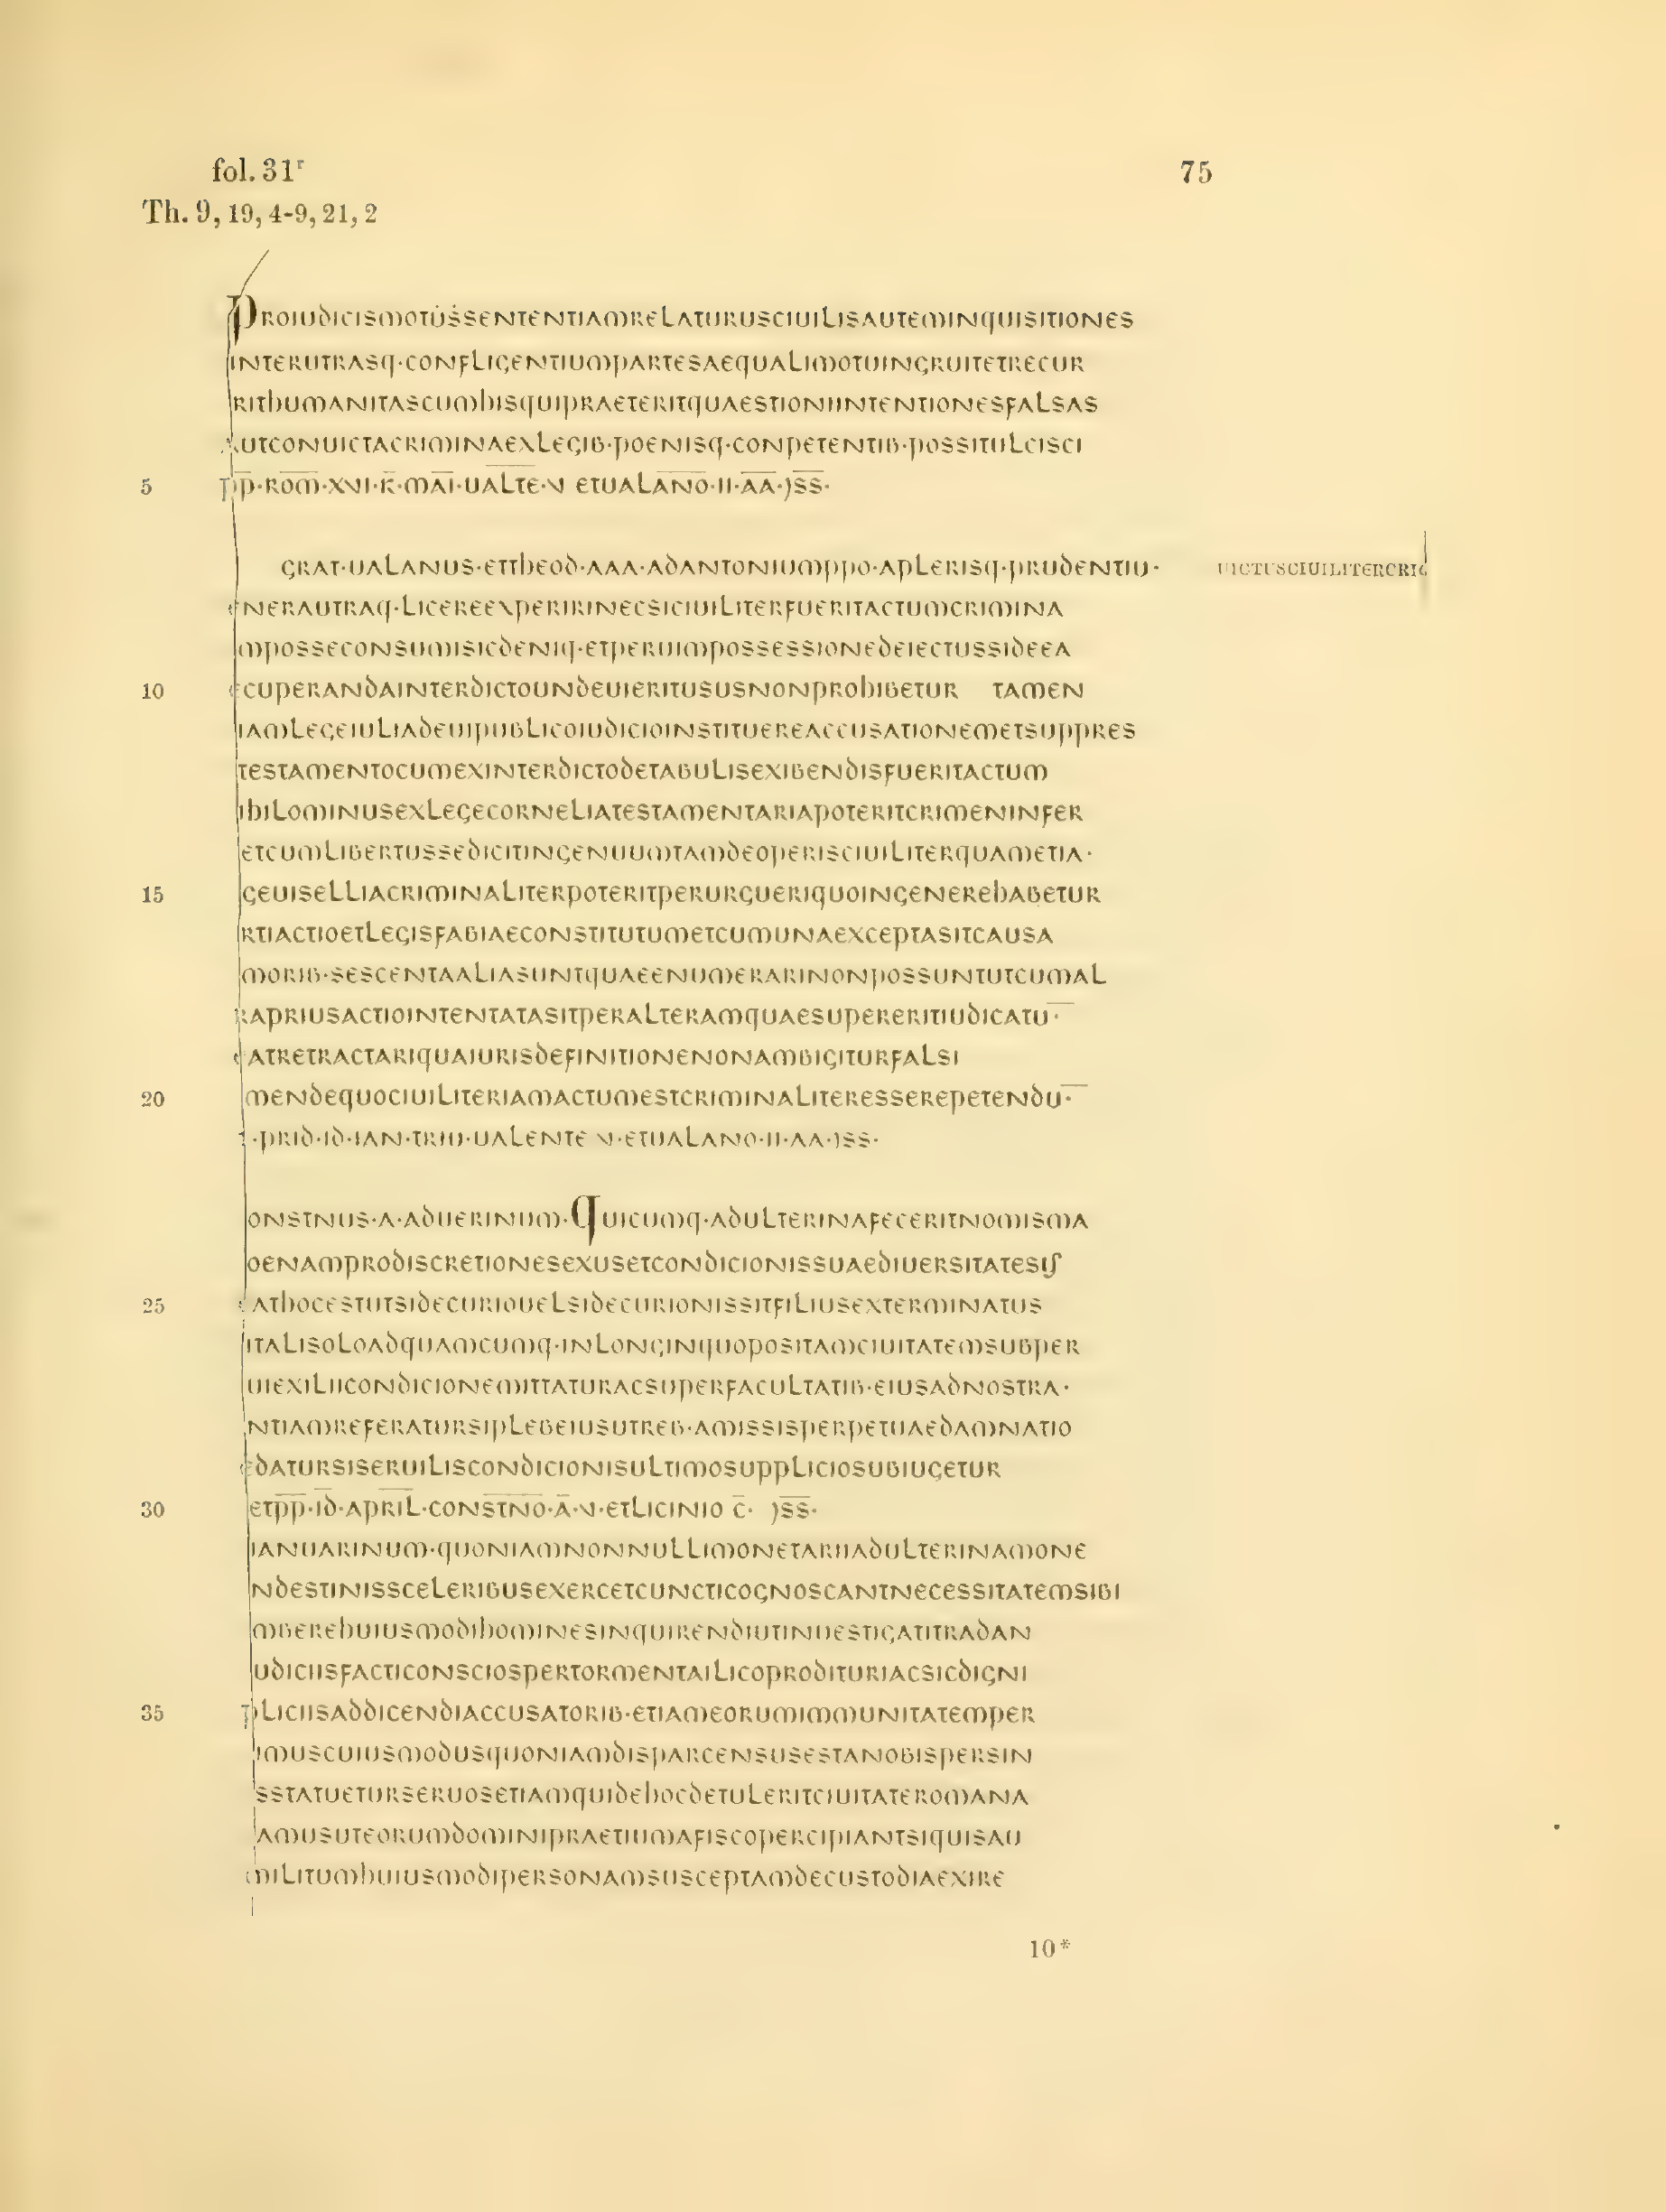 fol. 31r
75
Th. 9, 19, 4-9, 21, 2
PROIUDICISMOTUSSENTENTIAMRELATURUSCIUILISAUTEMINQUISITIONES
INTERUTRASQ·CONFLIGENTIUMPARTESAEQUALIMOTUINGRUITETRECUR
RITHUMANITASCUMHISQUIPRAETERITQUAESTIONIINTENTIONESFALSAS
AUTCONUICTACRIMINAEXLEGIB·POENISQ·COMPETENTIB·POSSITULCISCI
5 PP·ROM·XVI·K·MAI·UALTE·V ETUALANO·II·AA·)SS·
GRAT·UALANUS·ETTHEOD·AAA·ADANTONIUMPPO·APLERISQ·PRUDENTIU·
UICTUSCIUILITERCRIG
ENERAUTRAQ·LICEREEXPERIRINECSICIUILITERFUERITACTUMCRIMINA
MPOSSECONSUMISICDENIQ·ETPERUIMPOSSESSIONEDEIECTUSSIDEEA
10 ECUPERANDAINTERDICTOUNDEUIERITUSUSNONPROHIBETUR TAMEN
IAMLEGEIULIADEUIPUBLICOIUDICIOINSTITUEREACCUSATIONEMETSUPPRES
TESTAMENTOCUMEXINTERDICTODETABULISEXIBENDISFUERITACTUM
IHILOMINUSEXLEGECORNELIATESTAMENTARIAPOTERITCRIMENINFER
ETCUMLIBERTUSSEDICITINGENUUMTAMDEOPERISCIUILITERQUAMETIA·
15 GEUISELLIACRIMINALITERPOTERITPERURGUERIQUOINGENEREHABETUR
RTIACTIOETLEGISFABIAECONSTITUTUMETCUMUNAEXCEPTASITCAUSA
MORIB·SESCENTAALIASUNTQUAEENUMERARINONPOSSUNTUTCUMAL
RAPRIUSACTIOINTENTATASITPERALTERAMQUAESUPERERITIUDICATU·
ATRETRACTARIQUAIURISDEFINITIONENONAMBIGITURFALSI
20 MENDEQUOCIUILITERIAMACTUMESTCRIMINALITERESSEREPETENDU·
·PRID·ID·IAN·TRIU·UALENTE V·ETUALANO·II·AA·)SS·
ONSTNUS·A·ADUERINUM·QUICUMQ·ADULTERINAFECERITNOMISMA
OENAMPRODISCRETIONESEXUSETCONDICIONISSUAEDIUERSITATESIS
25 ATHOCESTUTSIDECURIOUELSIDECURIONISSITFILIUSEXTERMINATUS
ITALISOLOADQUAMCUMQ·INLONGINQUOPOSITAMCIUITATEMSUBPER
UIEXILIICONDICIONEMITTATURACSUPERFACULTATIB·EIUSADNOSTRA·
NTIAMREFERATURSIPLEBEIUSUTREB·AMISSISPERPETUAEDAMNATIO
EDATURSISERUILISCONDICIONISULTIMOSUPPLICIOSUBIUGETUR
30 ETPP·ID·APRIL·CONSTNO·A·V·ETLICINIO C· )SS·
IANUARINUM·QUONIAMNONNULLIMONETARIIADULTERINAMONE
NDESTINISSCELERIBUSEXERCETCUNCTICOGNOSCANTNECESSITATEMSIBI
MBEREHUIUSMODIHOMINESINQUIRENDIUTINUESTIGATITRADAN
UDICIISFACTICONSCIOSPERTORMENTAILICOPRODITURIACSICDIGNI
35 PLICIISADDICENDIACCUSATORIB·ETIAMEORUMIMMUNITATEMPER
IMUSCUIUSMODUSQUONIAMDISPARCENSUSESTANOBISPERSIN
SSTATUETURSERUOSETIAMQUIDEHOCDETULERITCIUITATEROMANA
AMUSUTEORUMDOMINIPRAETIUMAFISCOPERCIPIANTSIQUISAU
MILITUMHUIUSMODIPERSONAMSUSCEPTAMDECUSTODIAEXIRE
10*